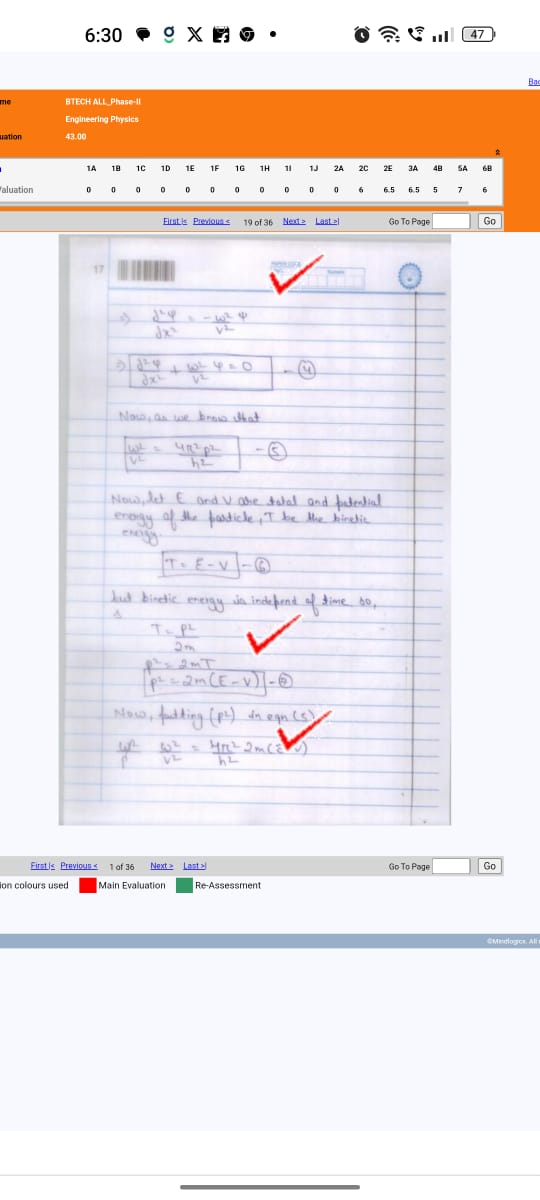 6:30 47
Bac
me BTECH ALL_Phase-II
Engineering Physics
uation 43.00
1A 1B 1C 1D 1E 1F 1G 1H 1I 1J 2A 2C 2E 3A 4B 5A 6B
/aluation 0 0 0 0 0 0 0 0 0 0 0 6 6.5 6.5 5 7 6
First |< Previous < 19 of 36 Next > Last >| Go To Page Go
17
⇒ ∂²ψ/∂x² = -ω²/v² ψ
⇒ ∂²ψ/∂x² + ω²/v² ψ = 0 - (4)
Now, as we know that
ω²/v² = 4π²p²/h² - (5)
Now, let E and V are total and potential
energy of the particle, T be the kinetic
energy.
T = E - V - (6)
but kinetic energy is independ of time so,
T = p²/2m
p² = 2mT
p² = 2m(E-V) - (7)
Now, putting (p²) in eqn (5)
ω² ω²/v² = 4π² 2m(E-V)/h²
First |< Previous < 1 of 36 Next > Last >| Go To Page Go
ion colours used Main Evaluation Re-Assessment
©Mindlogicx. All